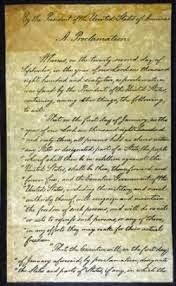 By the President of the United States of America:
A Proclamation.
Whereas, on the twenty second day of
September, in the year of our Lord one thousand
eight hundred and sixty two, a proclamation
was issued by the President of the United States,
containing, among other things, the following,
to wit:
"That on the first day of January, in the
year of our Lord one thousand eight hundred
and sixty-three, all persons held as slaves within
any State or designated part of a State, the people
whereof shall then be in rebellion against the
United States, shall be then, thenceforward, and
forever free; and the Executive Government of the
United States, including the military and naval
authority thereof, will recognize and maintain
the freedom of such persons, and will do no act
or acts to repress such persons, or any of them,
in any efforts they may make for their actual
freedom.
"That the Executive will, on the first day
of January aforesaid, by proclamation, designate
the States and parts of States, if any, in which the